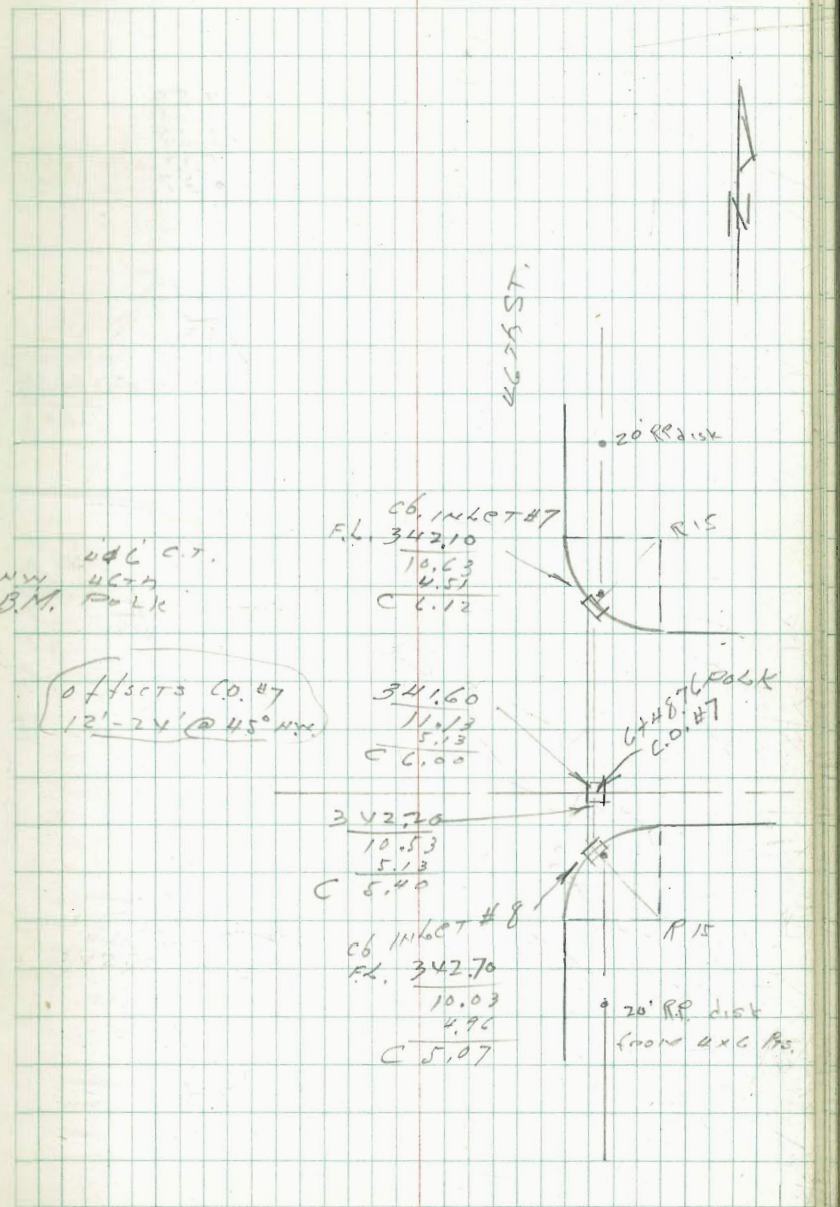 N
46TH ST.
20' R.P. disk
Cb. INLET #7
F.L. 342.10
10.63
4.51
C 6.12
R 15
C.T.
N.W. 46TH
B.M. POLK
offsets C.O. #7
12'-24' @ 45° N.W.
341.60
11.13
5.13
C 6.00
6+48.76 POLK
C.O. #7
342.20
10.53
5.13
C 5.40
Cb INLET #8
F.L. 342.70
10.03
4.96
C 5.07
R 15
20' R.P. disk
from 4x6 Pts.